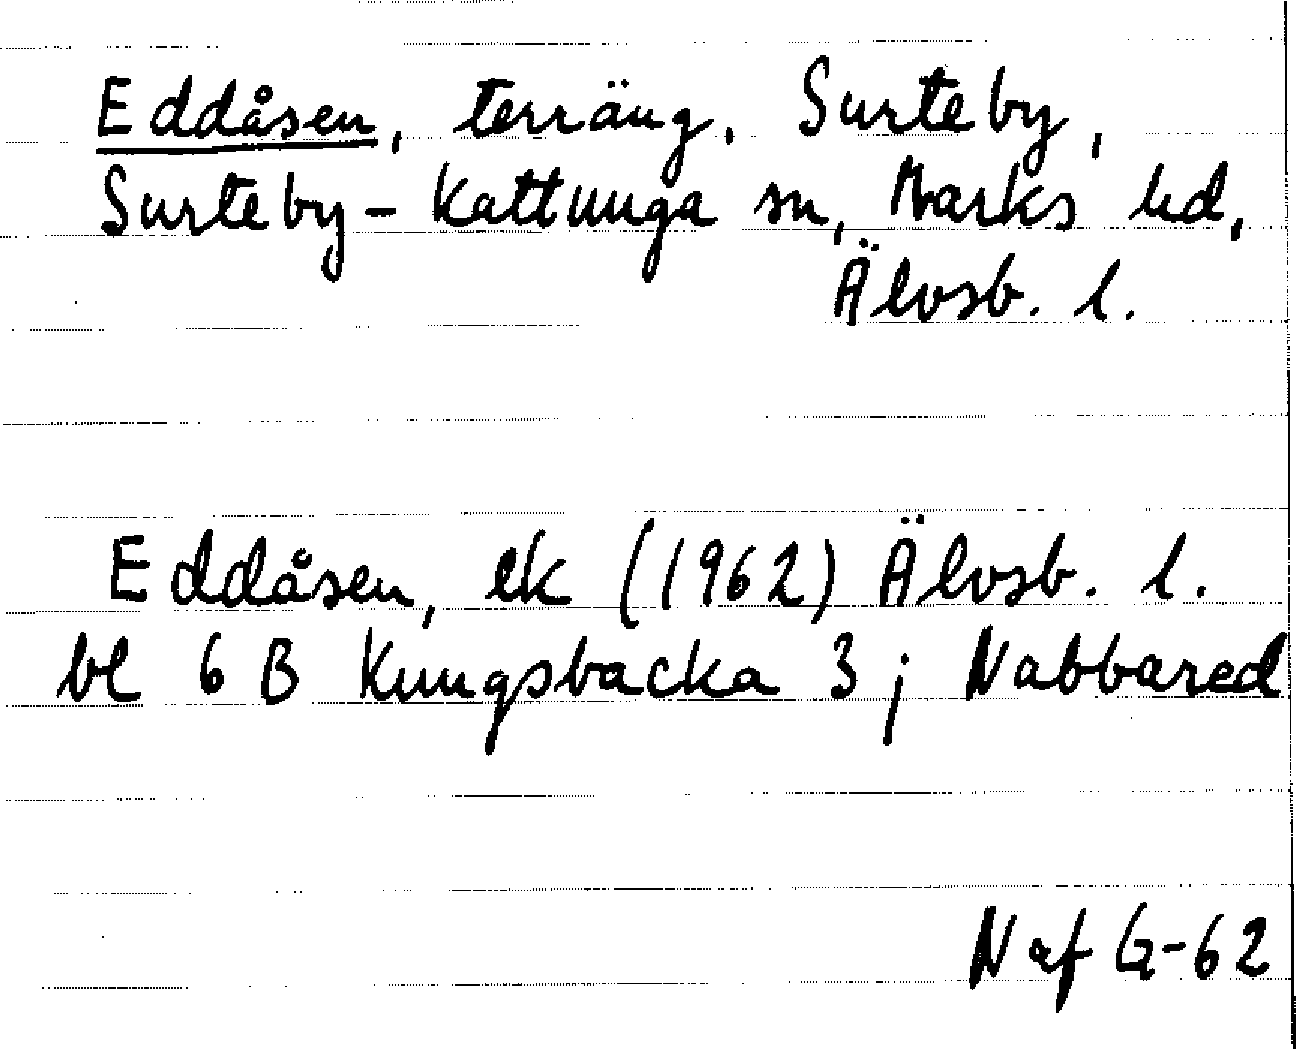 Eddåsen, terräng, Surteby,
Surteby-Kattunga sn, Marks hd,
Älvsb. l.
Eddåsen, ek (1962) Älvsb. l.
bl 6 B Kungsbacka 3; Nabbared
Naf G-62